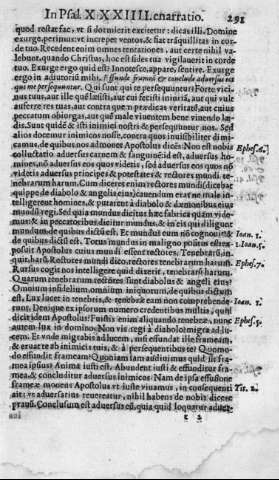 In Psal. XXXIIII. enarratio. 291
quod restat fac, vt si dormierit excitetur: dicas illi. Domine
exurge, perimus: vt increpet ventos, & fiat träquillitas in cor-
de tuo. Recedent enim omnes tentationes, aut certe nihil va
lebunt, quando Christus, hoc est fides tua vigilauerit in corde
tuo. Exurge ergo quid est? Innotesce, appare, sentire. Exurge
ergo in adiutoriū mihi. Effunde frameā & conclude aduersus eos
qui me persequuntur. Qui sunt qui te persequuntur? Forte vici-
nus tuus, aut ille quē læsisti, aut cui fecisti iniuriā, aut qui vult
auferre res tuas, aut contra quē prædicas veritatē, aut cuius
peccatum obiurgas, aut quē male viuentem bene viuendo læ-
dis. Sunt quidē & isti inimici nostri & persequuntur nos. Sed
alios docemur inimicos nosse, contra quos inuisibiliter di-
micamus, de quibus nos admonet Apostolus dicēs Non est nobis
colluctatio aduersus carnem & sanguinē, id est, aduersus ho-
mines, nō aduersus eos quos videtis, sed aduersus eos quos nō
videtis aduersus principes & potestates & rectores mundi te-
nebrarum harum. Cum diceret enim rectores mundi
quippe de diabolo & angelis eius
telligerent homines, & putarent à diabolo & dæmonibus
mundū regi. Sed quia mundus dicitur hæc fabrica quam vide-
mus: & in peccatoribus dicitur mundus, & in eis qui diligunt
mundum, de quibus dictū est. Et mundus eum nō cognouit: &
de quibus dictū est. Totus mundus in maligno positus est:
posuit Apostolus cuius mundi essent rectores. Tenebrarū in-
quit, harū. Rectores mundi dico, rectores tenebrarum harum.
Rursus cogit nos intelligere quid dixerit, tenebrarū harum.
Quarum tenebrarum rectores sunt diabolus & angeli eius?
Omnium infidelium omnium iniquorum, de quibus dictum
est. Lux lucet in tenebris, & tenebræ eam non comprehende-
runt. Denique ex ipsorum numero credentibus multis, quid
dicit idem Apostolus? Fuistis enim aliquando tenebræ, nunc
autem lux in domino. Non vis regi à diabolo? migra ad lu-
cem. Et vnde migrabis ad lucem, nisi effundat ille frameam,
& eruat te ab inimicis tuis, & à persequentibus te? Quomo-
do effundit frameam? Quoniam iam audiuimus quid sit fra-
mea ipsius: Anima iusti est. Abundent iusti & effunditur fra-
mea, & concluditur aduersus inimicos. Nam de ipsa effusione
frameæ monent Apostolus vt iuste viuamus, in consequenti
ait: vt aduersarius reuereatur, nihil habens de nobis dicere
prauū. Conclusum est aduersus eū, quia quid loquatur aduer-
Ephes. 6.
Ioan. 1.
1. Ioan. 5.
Ephes. 7.
Ioan. 1.
Ephes. 5.
Tit. 2.